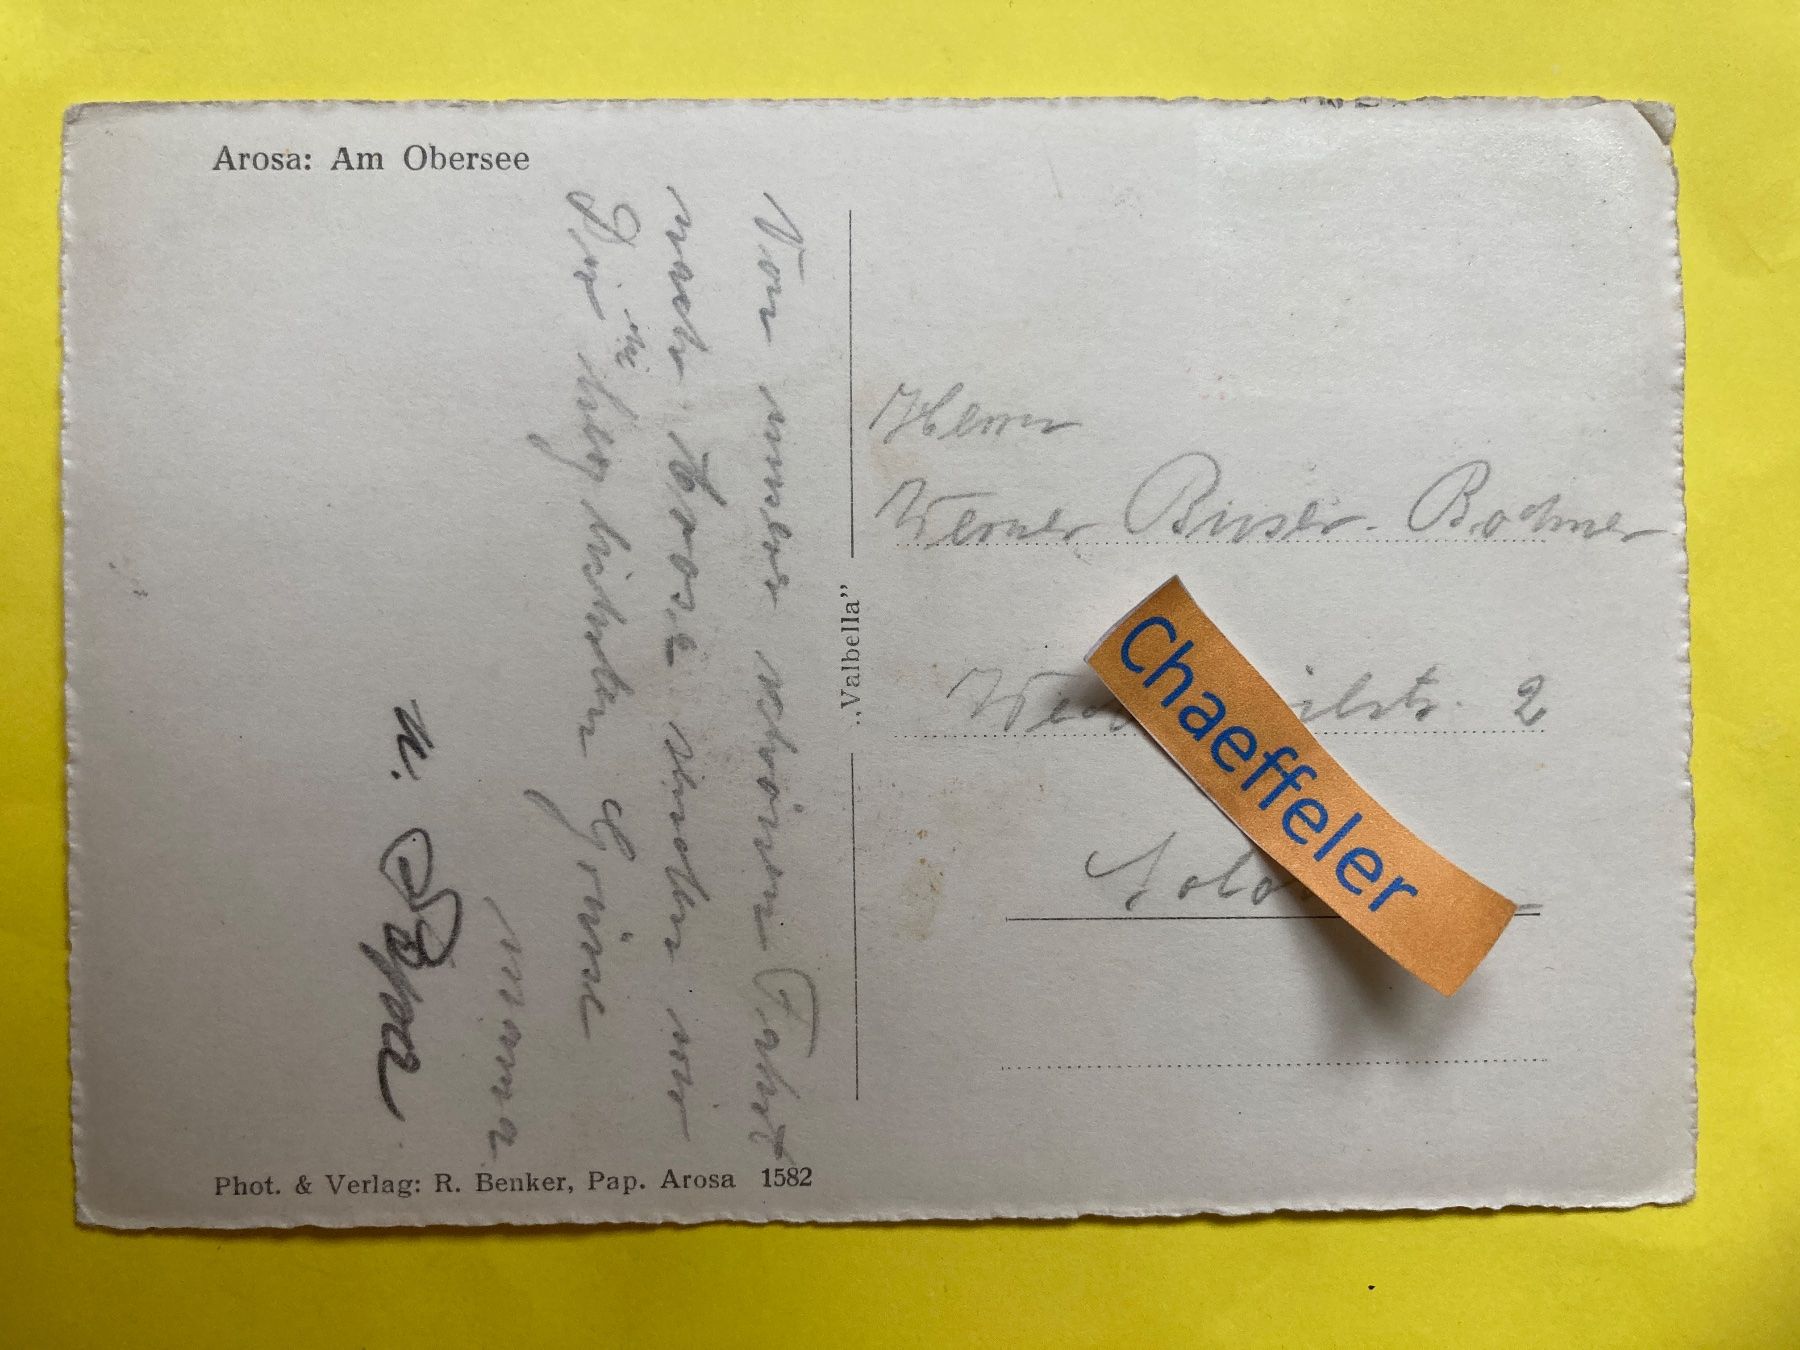 Arosa: Am Obersee
Von unserer schönen Fahrt
nach Arosa senden wir
Dir die herzlichsten Grüsse
Mama
u. Papa
„Valbella”
Herrn
Werner Buser-Bohner
2
Chaeffeler
Phot. & Verlag: R. Benker, Pap. Arosa 1582